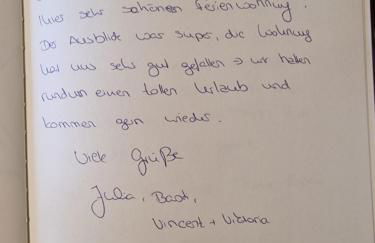 Ihrer sehr schönen Ferienwohnung.
Der Ausblick war super, die Wohnung
hat uns sehr gut gefallen → wir hatten
rundum einen tollen Urlaub und
kommen gern wieder.
Viele Grüße
Julia, Basti,
Vincent + Viktoria